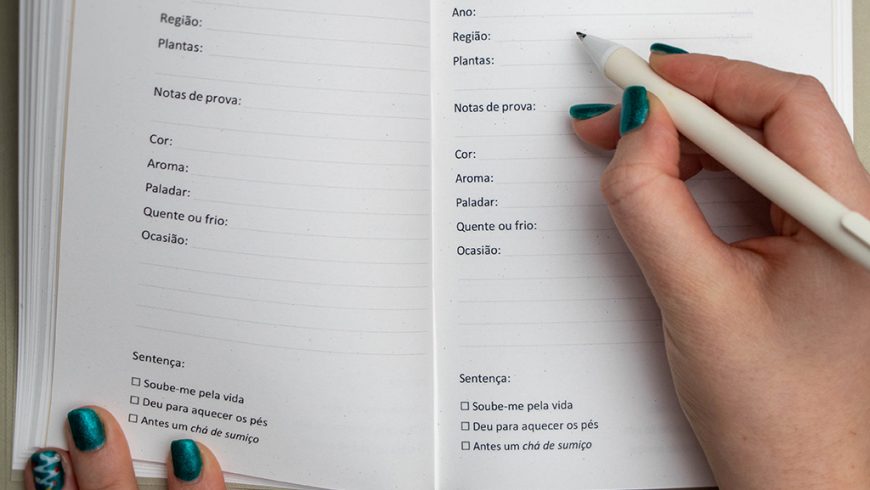 Região:
Plantas:
Notas de prova:
Cor:
Aroma:
Paladar:
Quente ou frio:
Ocasião:
Sentença:
☐ Soube-me pela vida
☐ Deu para aquecer os pés
☐ Antes um chá de sumiço
Ano:
Região:
Plantas:
Notas de prova:
Cor:
Aroma:
Paladar:
Quente ou frio:
Ocasião:
Sentença:
☐ Soube-me pela vida
☐ Deu para aquecer os pés
☐ Antes um chá de sumiço